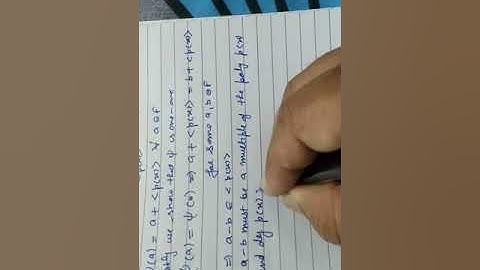 (a) = a + <p(x)> ∀ a∈F
we show that ψ is one-one
(a) = ψ(b) ⇒ a + <p(x)> = b + <p(x)>
for some a, b ∈ F
⇒ a-b ∈ <p(x)>
a-b must be a multiple of the poly p(x)
deg p(x) ≥